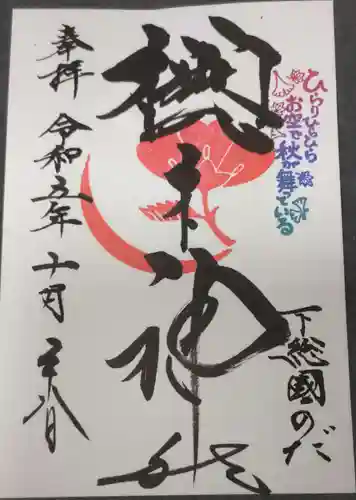 ひらりひらひら
お空で秋が舞っている
下総國のだ
櫻木神社
奉拝
令和五年